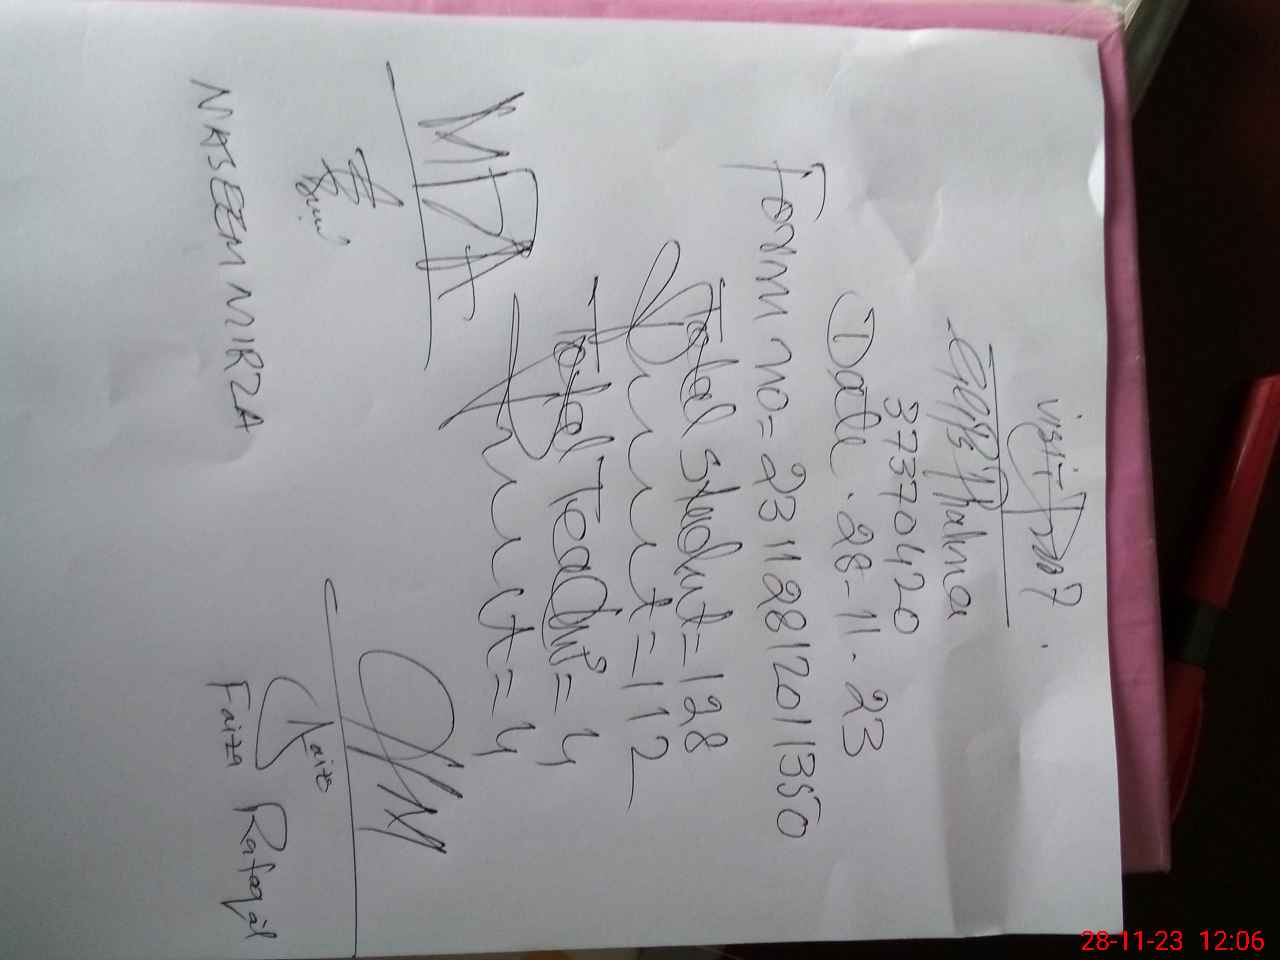 visit Proof
GGPS Thalma
37370420
Date. 28-11-23
Form no = 23112812011350
Total Student = 128
Present = 112
Total Teacher = 4
Present = 4
MEA
NASEEM MIRZA
Faiza
Faiza Rafaqat
28-11-23 12:06